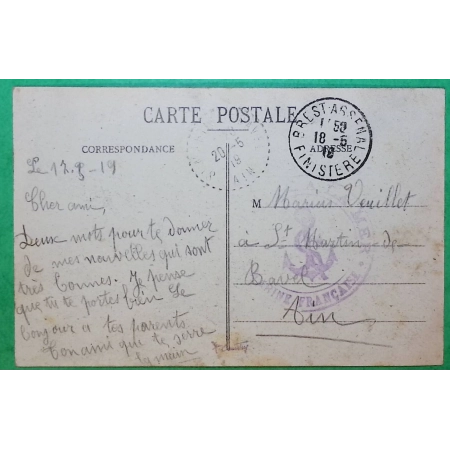 CARTE POSTALE
CORRESPONDANCE
ADRESSE
BREST-ARSENAL
18-5
FINISTERE
20-5
Le 17.5-19
Cher ami,
Deux mots pour te donner
de mes nouvelles qui sont
très bonnes. Je pense
que tu te portes bien Le
bonjour a tes parents
ton ami que te serre
la main
M Marius Veuillet
à St Martin-de
Bavel
Ain
FRANÇAISE